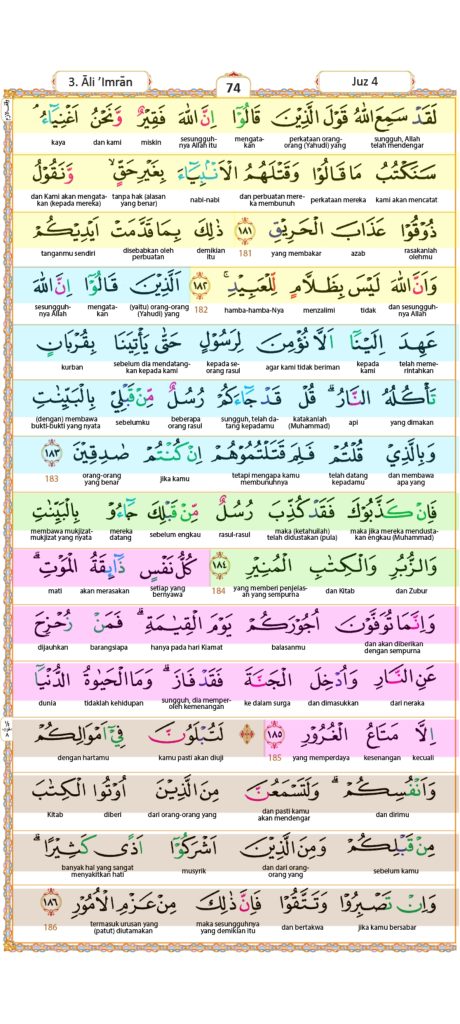 3. Āli 'Imrān
74
Juz 4
لَقَدْ سَمِعَ اللّٰهُ قَوْلَ الَّذِيْنَ قَالُوْٓا اِنَّ اللّٰهَ فَقِيْرٌ وَّنَحْنُ اَغْنِيَاۤءُ ۘ
sungguh, Allah telah mendengar perkataan orang-orang (Yahudi) yang mengatakan sesungguhnya Allah itu miskin dan kami kaya
سَنَكْتُبُ مَا قَالُوْا وَقَتْلَهُمُ الْاَنْۢبِيَاۤءَ بِغَيْرِ حَقٍّۙ وَّنَقُوْلُ
kami akan mencatat perkataan mereka dan perbuatan mereka membunuh nabi-nabi tanpa hak (alasan yang benar) dan Kami akan mengatakan (kepada mereka)
ذُوْقُوْا عَذَابَ الْحَرِيْقِ ١٨١ ذٰلِكَ بِمَا قَدَّمَتْ اَيْدِيْكُمْ
rasakanlah olehmu azab yang membakar 181 demikian itu disebabkan oleh perbuatan tanganmu sendiri
وَاَنَّ اللّٰهَ لَيْسَ بِظَلَّامٍ لِّلْعَبِيْدِۚ ١٨٢ اَلَّذِيْنَ قَالُوْٓا اِنَّ اللّٰهَ
dan sesungguhnya Allah tidak menzalimi hamba-hamba-Nya 182 (yaitu) orang-orang (Yahudi) yang mengatakan sesungguhnya Allah
عَهِدَ اِلَيْنَآ اَلَّا نُؤْمِنَ لِرَسُوْلٍ حَتّٰى يَأْتِيَنَا بِقُرْبَانٍ
telah memerintahkan kepada kami agar kami tidak beriman kepada seorang rasul sebelum dia mendatangkan kepada kami kurban
تَأْكُلُهُ النَّارُ ۗ قُلْ قَدْ جَاۤءَكُمْ رُسُلٌ مِّنْ قَبْلِيْ بِالْبَيِّنٰتِ
yang dimakan api katakanlah (Muhammad) sungguh, telah datang kepadamu beberapa orang rasul sebelumku (dengan) membawa bukti-bukti yang nyata
وَبِالَّذِيْ قُلْتُمْ فَلِمَ قَتَلْتُمُوْهُمْ اِنْ كُنْتُمْ صٰدِقِيْنَ ١٨٣
dan membawa apa yang telah datang kepada kamu tetapi mengapa kamu membunuhnya jika kamu orang-orang yang benar 183
فَاِنْ كَذَّبُوْكَ فَقَدْ كُذِّبَ رُسُلٌ مِّنْ قَبْلِكَ جَاۤءُوْ بِالْبَيِّنٰتِ
maka jika mereka mendustakan engkau (Muhammad) maka (ketahuilah) telah didustakan (pula) rasul-rasul sebelum engkau mereka datang membawa mukjizat-mukjizat yang nyata
وَالزُّبُرِ وَالْكِتٰبِ الْمُنِيْرِ ١٨٤ كُلُّ نَفْسٍ ذَاۤىِٕقَةُ الْمَوْتِۗ
dan Zubur dan Kitab yang memberi penjelasan yang sempurna 184 setiap yang bernyawa akan merasakan mati
وَاِنَّمَا تُوَفَّوْنَ اُجُوْرَكُمْ يَوْمَ الْقِيٰمَةِ ۗ فَمَنْ زُحْزِحَ
dan akan diberikan dengan sempurna balasanmu hanya pada hari Kiamat barangsiapa dijauhkan
عَنِ النَّارِ وَاُدْخِلَ الْجَنَّةَ فَقَدْ فَازَ ۗ وَمَا الْحَيٰوةُ الدُّنْيَآ
dari neraka dan dimasukkan ke dalam surga sungguh, dia memperoleh kemenangan tidaklah kehidupan dunia
اِلَّا مَتَاعُ الْغُرُوْرِ ١٨٥ لَتُبْلَوُنَّ فِيْٓ اَمْوَالِكُمْ
kecuali kesenangan yang memperdaya 185 kamu pasti akan diuji dengan hartamu
وَاَنْفُسِكُمْۗ وَلَتَسْمَعُنَّ مِنَ الَّذِيْنَ اُوْتُوا الْكِتٰبَ
dan dirimu dan pasti kamu akan mendengar dari orang-orang yang diberi Kitab
مِنْ قَبْلِكُمْ وَمِنَ الَّذِيْنَ اَشْرَكُوْٓا اَذًى كَثِيْرًا ۗ
sebelum kamu dan dari orang-orang yang musyrik banyak hal yang sangat menyakitkan hati
وَاِنْ تَصْبِرُوْا وَتَتَّقُوْا فَاِنَّ ذٰلِكَ مِنْ عَزْمِ الْاُمُوْرِ ١٨٦
jika kamu bersabar dan bertakwa maka sesungguhnya yang demikian itu termasuk urusan yang (patut) diutamakan 186